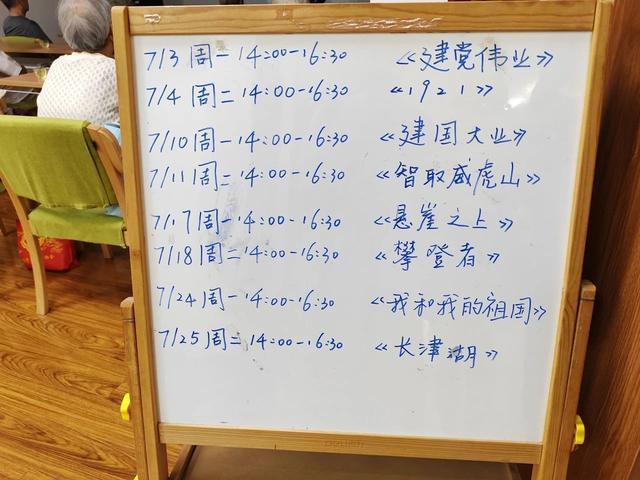 7/3 周一 14:00-16:30 《建党伟业》
7/4 周二 14:00-16:30 《1921》
7/10 周一 14:00-16:30 《建国大业》
7/11 周二 14:00-16:30 《智取威虎山》
7/17 周一 14:00-16:30 《悬崖之上》
7/18 周二 14:00-16:30 《攀登者》
7/24 周一 14:00-16:30 《我和我的祖国》
7/25 周二 14:00-16:30 《长津湖》